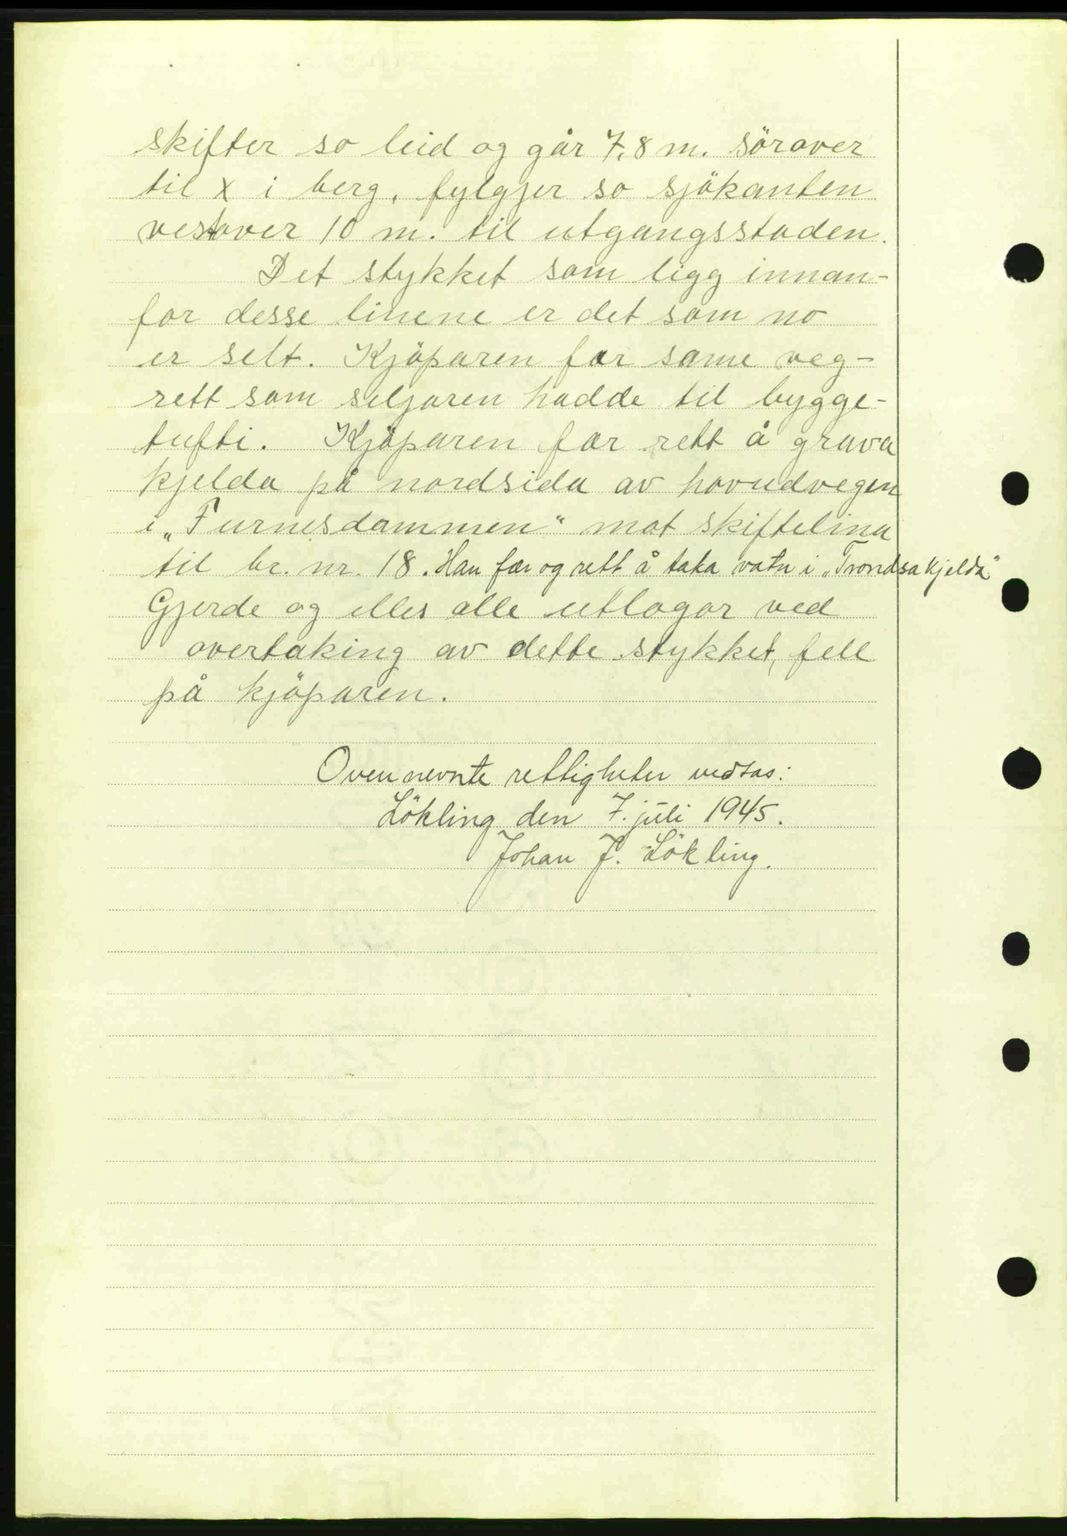 skifter so leid og går 7,8 m. söröver
til x i berg, fylgjer so sjökanten
vestover 10 m. til utgangsstaden.
Det stykket som ligg innan-
for desse linene er det som no
er selt. Kjöparen fær same veg-
rett som seljaren hadde til bygge-
tufti. Kjöparen fær rett å grava
kjelda på nordsida av hovudvegen
i „Furnesdammen" mot skiftelina
til br. nr. 18. Han fær og rett å taka vatn i „Trondsakjelda"
Gjerde og elles alle utlogor ved
overtaking av dette stykket, fell
på kjöparen.
Ovennevnte rettigheter vedtas:
Lökling den 7. juli 1945.
Johan J. Lökling.